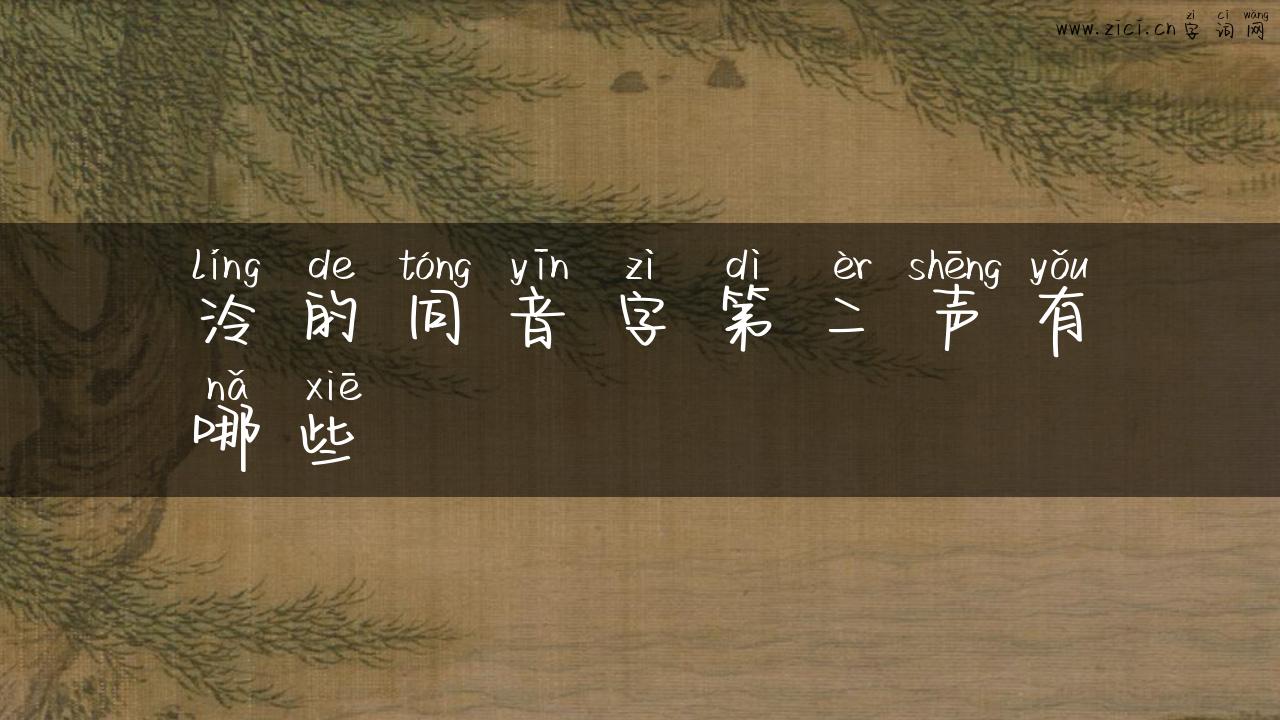 zì cí wǎng
www.zici.cn字词网
líng de tóng yīn zì dì èr shēng yǒu
泠的同音字第二声有
nǎ xiē
哪些